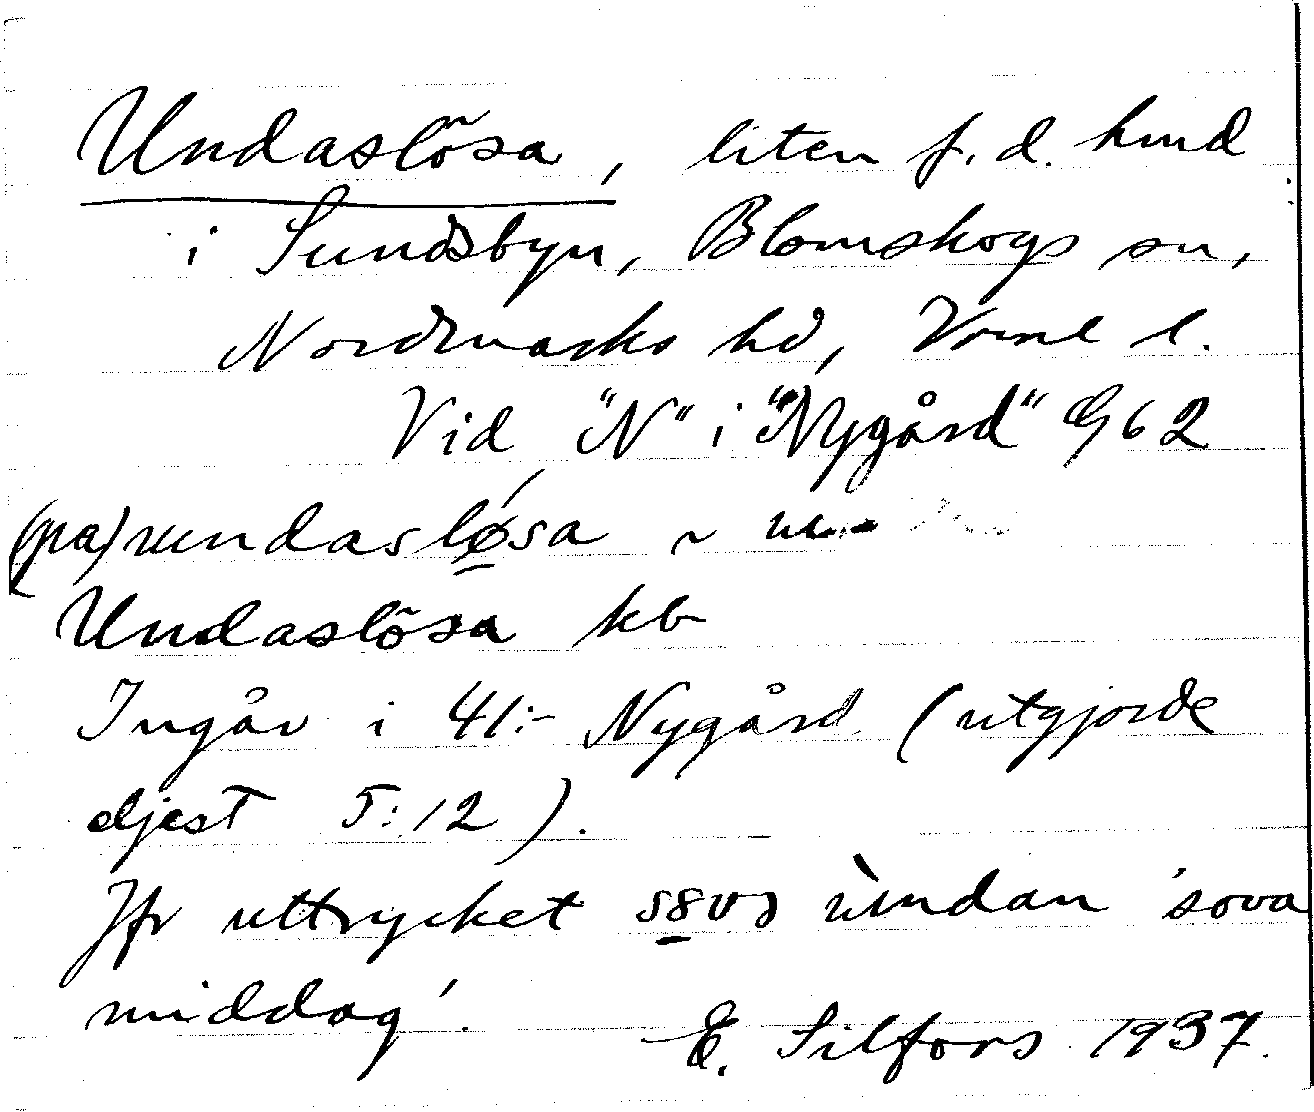 Undaslösa, liten f. d. lund
i Sundsbyn, Blomskogs sn,
Nordmarks hd, Vrml l.
Vid "N" i "Nygård" G 6 2
(pa) undasløsa ~
Undaslösa kb
Ingår i 41:- Nygård (utgjorde
eljest 5:12).
Jfr uttrycket undan 'sova
middag'.
E. Silfors 1937.